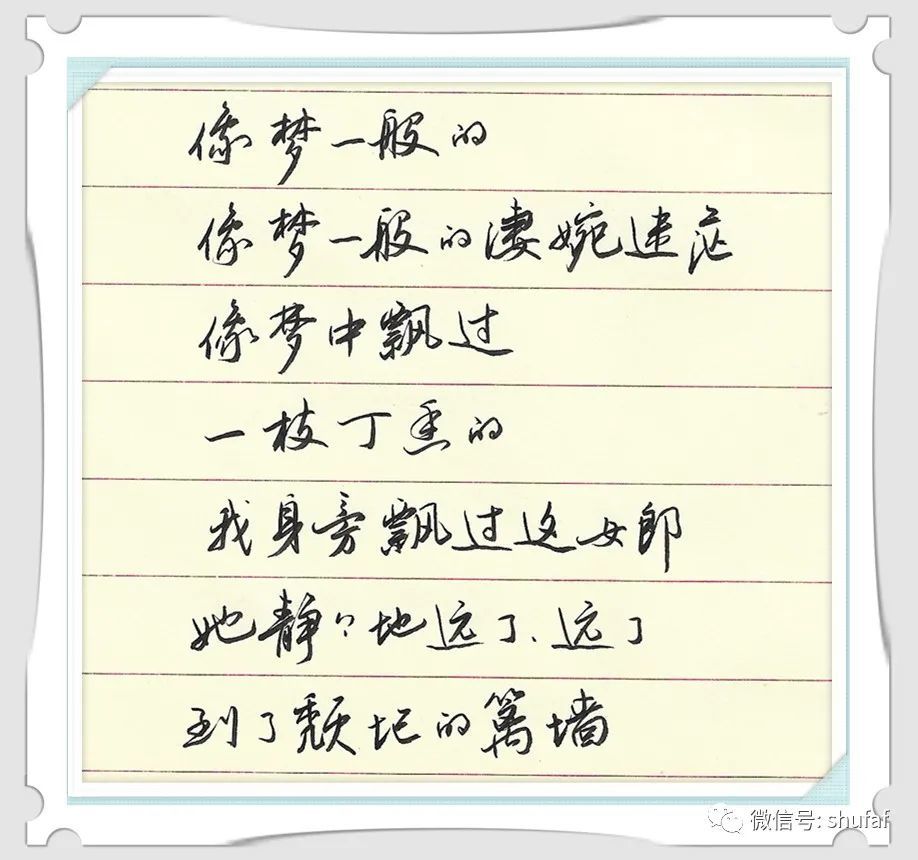 像梦一般的
像梦一般的凄婉迷茫
像梦中飘过
一枝丁香的
我身旁飘过这女郎
她静々地远了、远了
到了颓圮的篱墙
微信号: shufaf